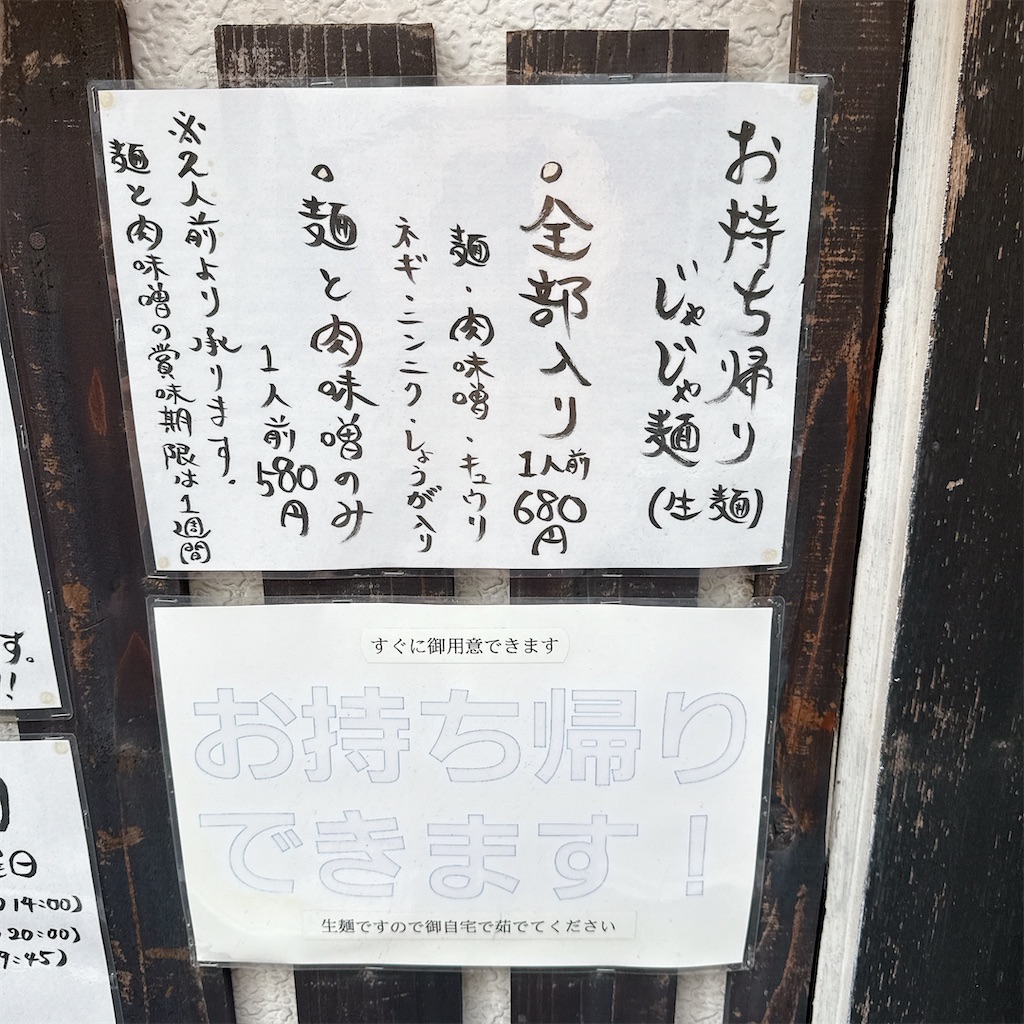 お持ち帰り
じゃじゃ麺
(生麺)
○全部入り 1人前 680円
麺・肉味噌・キュウリ
ネギ・ニンニク・しょうが入り
○麺と肉味噌のみ
1人前 580円
※2人前より承ります。
麺と肉味噌の賞味期限は1週間
すぐに御用意できます
お持ち帰り
できます!
生麺ですので御自宅で茹でてください
す。
!
日
14:00)
20:00)
9:45)